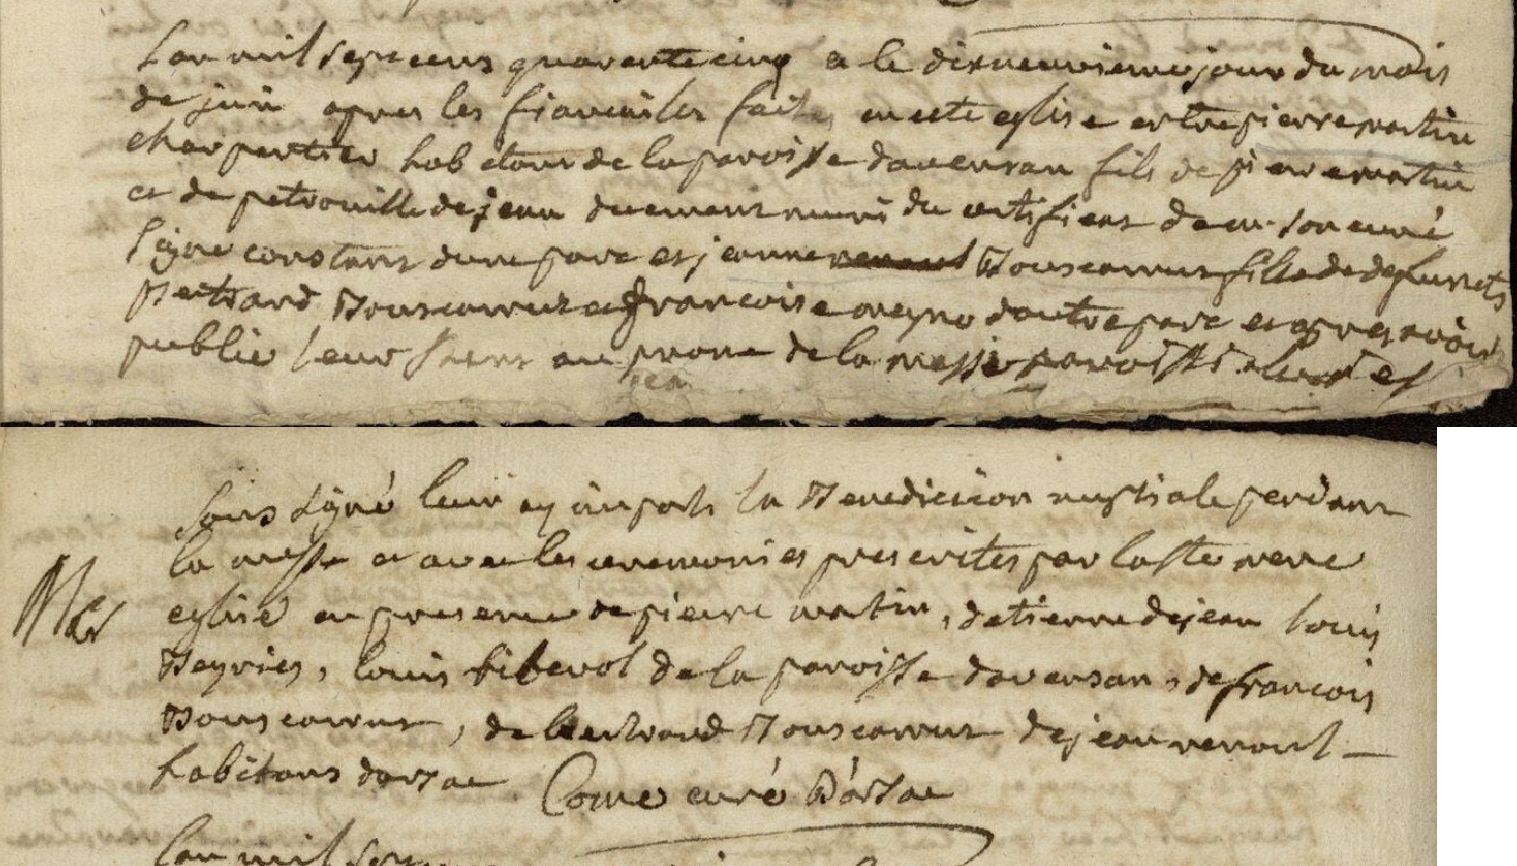 Lan mil sept cens quarente cinq e le dixneuvieme jour du mois
de juin apres les fiancailles faites en cette eglise entre pierre martin
charpentier habitant de la paroisse davensan fils de pierre martin
et de petronille dejean duement muni du certificat de mr son curé
signé constant dune part et jeanne Bouscarrut fille de defuncts
Bertrand Bouscarrut et francoise meyre dautre part et apres avoir
publié leur au prone de la messe paroissi
sous signé leur ay imparti la Benediction nuptiale pendant
la messe et avec les ceremonies prescrites par la ste mere
eglise en presence de pierre martin, detienne dejean louis
Beyries, louis de la paroisse davensan, de francois
Bouscarrut, de bertrand Bouscarrut de jean renoul
habitans darsac Come curé Darsac
Lan mil sept